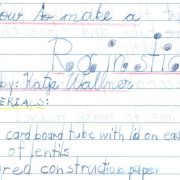 ow to make a
Rainstic
by: Katja Wallner
ERIALS:
card board tube with lid on ea
of lentils
red construction paper